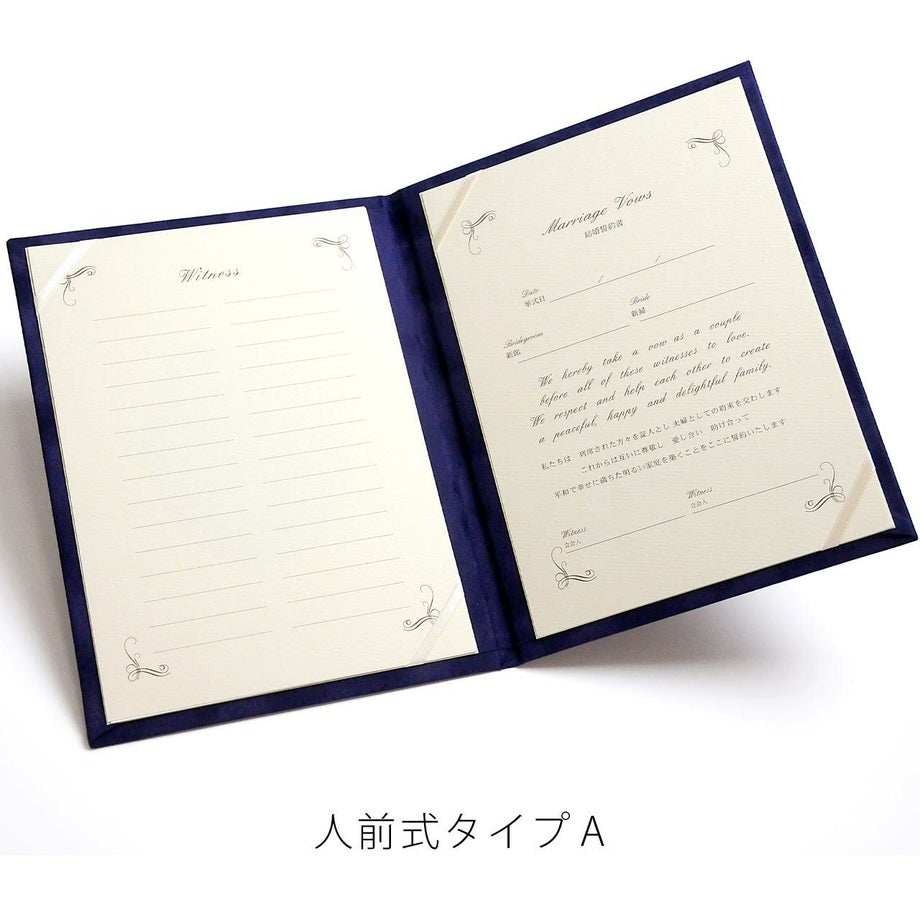 Witness
Marriage Vows
結婚誓約書
Date
挙式日 / /
Bridegroom
新郎
Bride
新婦
We hereby take a vow as a couple
before all of these witnesses to love.
We respect and help each other to create
a peaceful, happy and delightful family.
私たちは 列席された方々を証人とし 夫婦としての約束を交わします
これからは互いに尊敬し 愛し合い 助け合って
平和で幸せに満ちた明るい家庭を築くことをここに誓約いたします
Witness
立会人
Witness
立会人
人前式タイプA